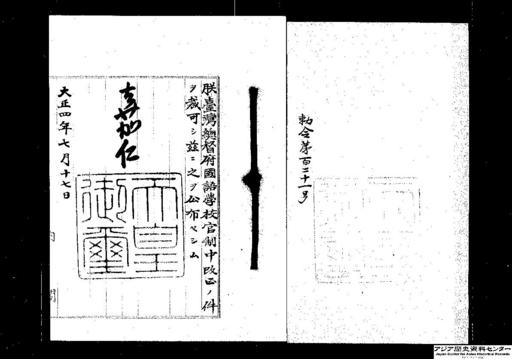 勅令第百二十一号
朕臺灣總督府國語學校官制中改正ノ件
ヲ裁可シ茲ニ之ヲ公布セシム
嘉仁
天皇
御璽
大正四年七月十七日
アジア歴史資料センター
Japan Center for Asian Historical Records